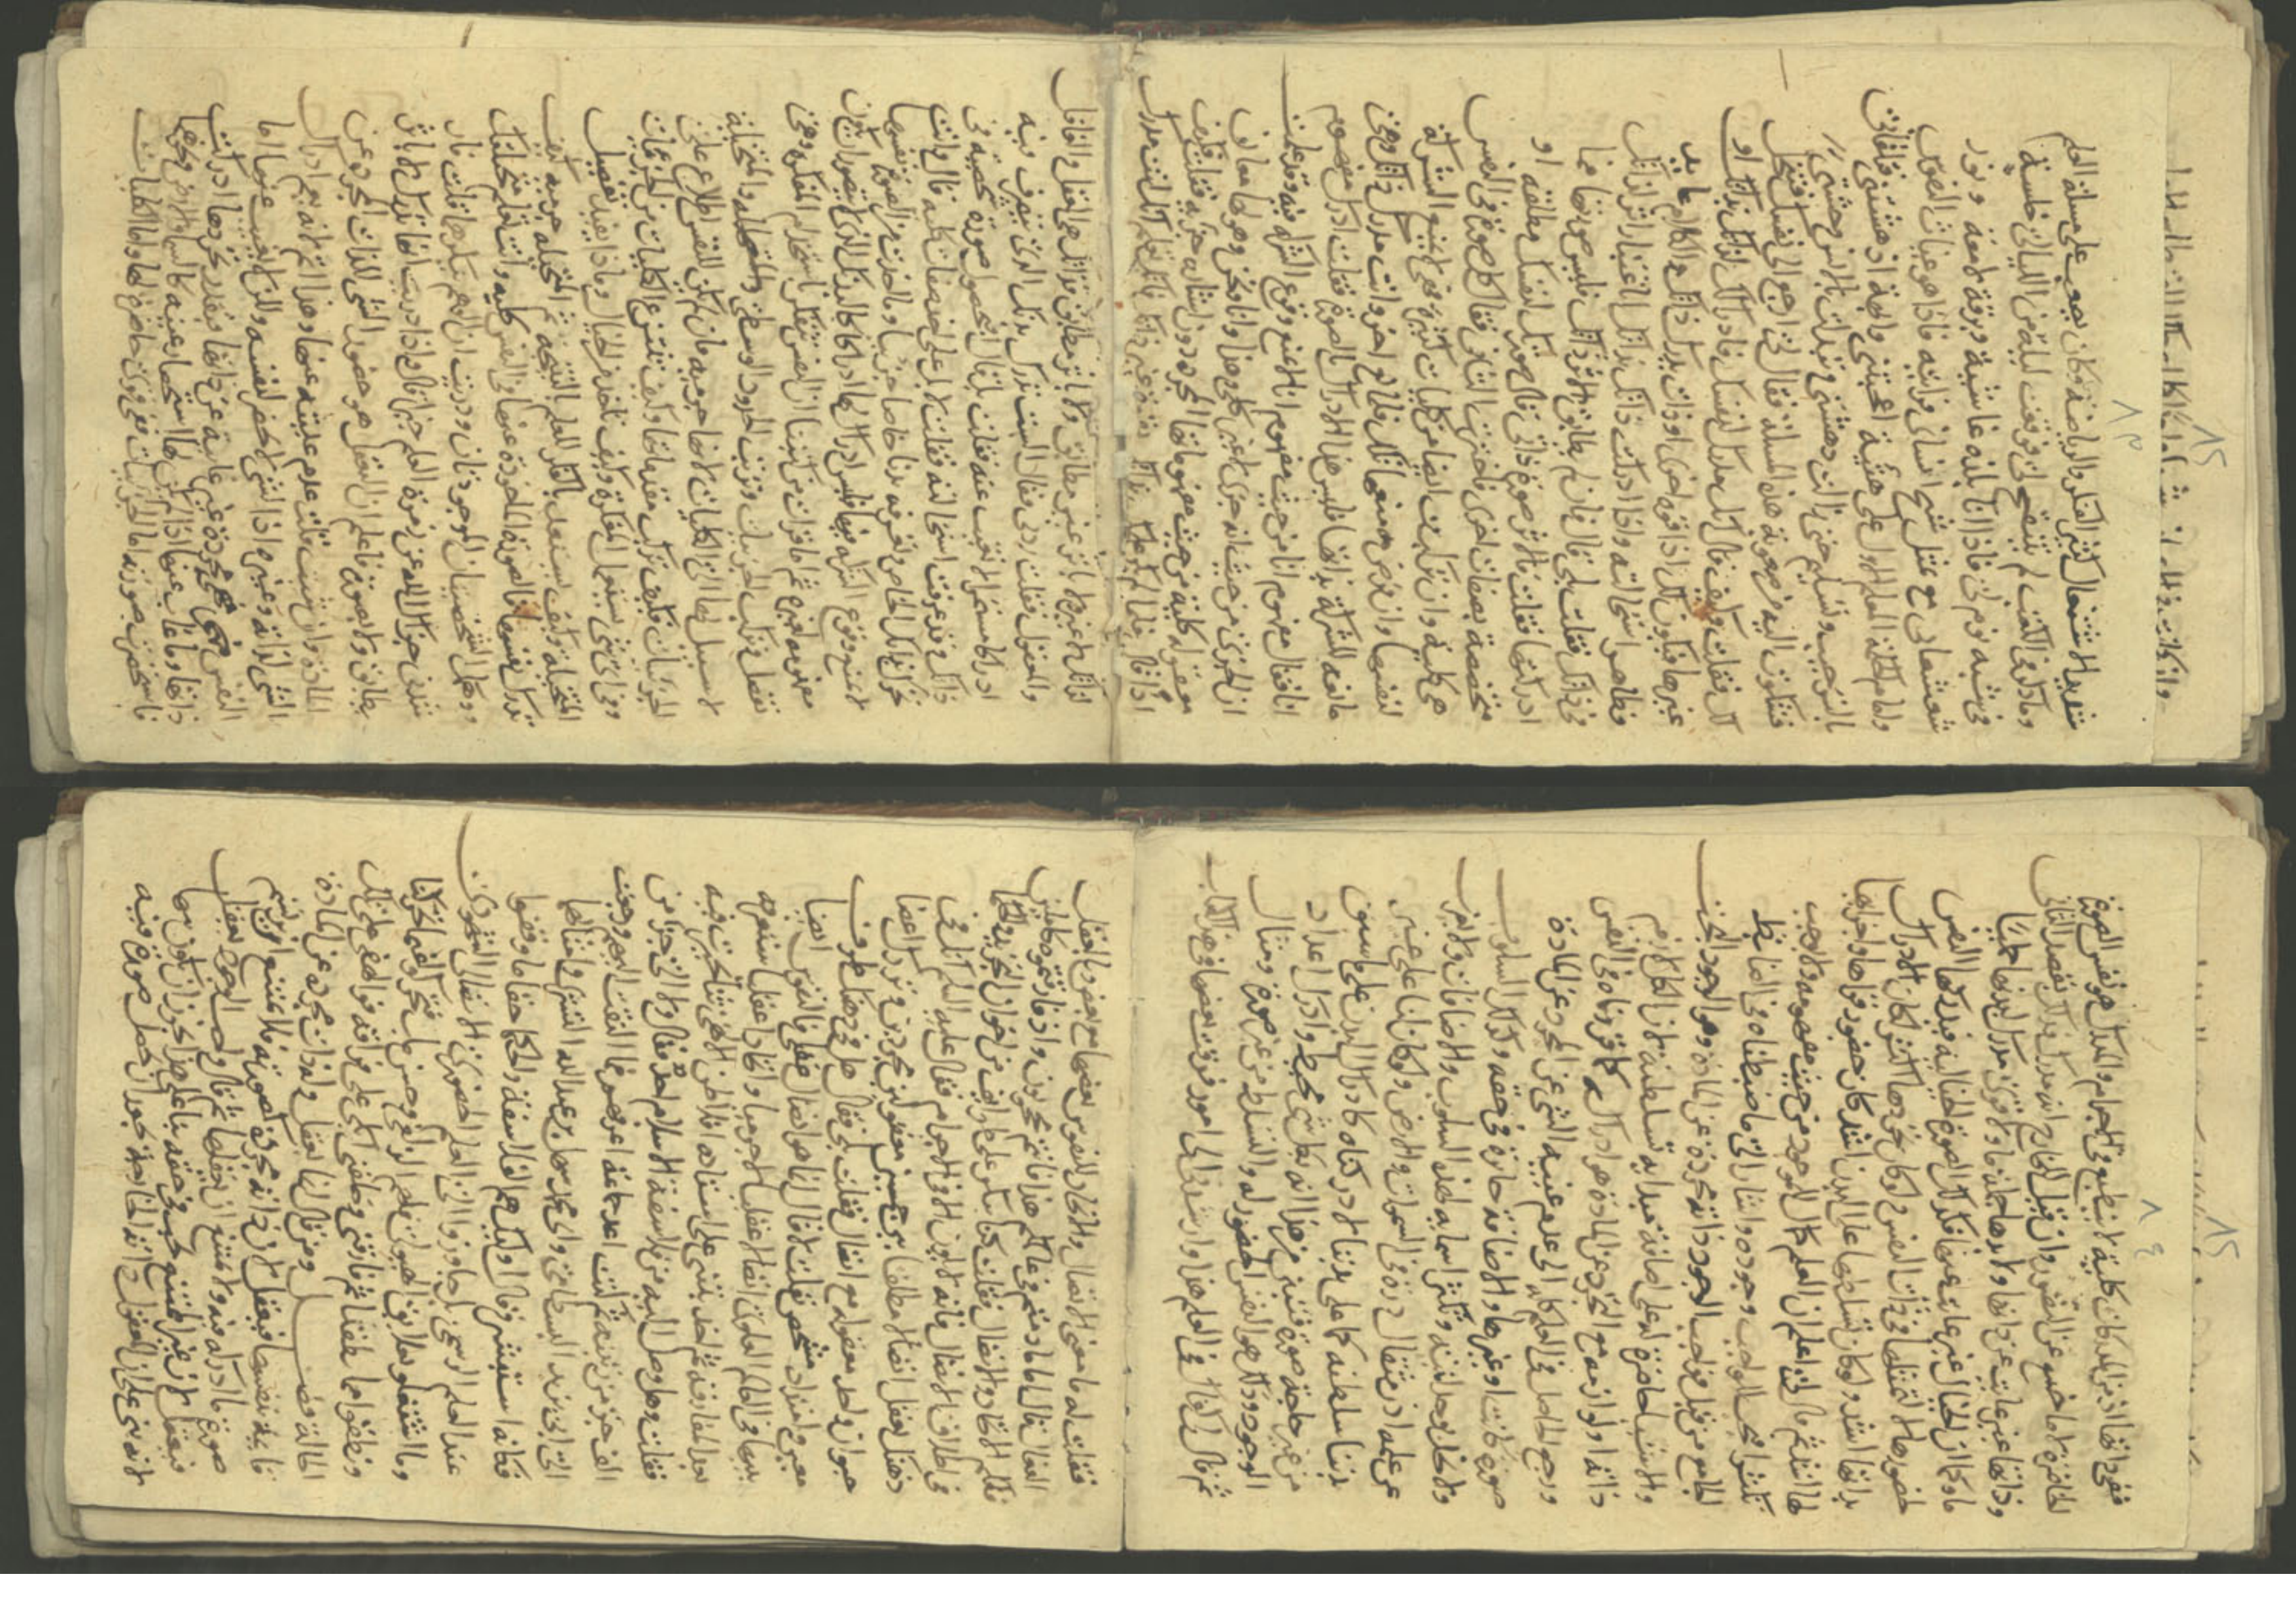 شديد الاشتغال كثير الفكر والرياضة وكان يصعب علي مسئلة العلم
وما ذكر في الكتب لم يتنقح لي فوقعت ليلة من الليالي خلسة
في شبه نوم لي فاذا انا بلذة غاشية وبرقة لامعة ونور
شعشعاني مع تمثل شبح انساني فرأيته فاذا هو غياث النفوس
وامام الحكمة المعلم الاول على هيئة اعجبتني وابهة ادهشتني فتلقاني
بالترحيب وتسليم حتى زالت دهشتي وتبدلت بالانس وحشتي
فشكوت اليه من صعوبة هذه المسئلة فقال لي ارجع الى نفسك فتنحل
لك فقلت وكيف فقال انك مدرك لنفسك فادراكك لذاتك بذاتك او
غيرها فيكون لك اذا قوة اخرى او ذات تدرك ذاتك والكلام عايد
وظاهر استحالته واذا ادركت ذاتك بذاتك اباعتبار اثر لذاتك
في ذاتك فقلت بلى قال فان لم يطابق الاثر ذاتك فليس صورتها فما
ادركتها فقلت فالاثر صورة ذاتي قال صورتك لنفسك مطلقة او
متخصصة بصفات اخرى فاخترت الثاني فقال كل صورة في النفس
هي كلية وان تركبت ايضا من كليات كثيرة فهي لا تمنع الشركة
لنفسها وان فرض منعها تلك فلمانع اخر وانت مدرك ذاتك وهي
مانعة للشركة بذاتها فليس هذا الادراك بالصورة فقلت ادرك مفهوم
انا فقال مفهوم انا من حيث مفهوم انا لا يمنع وقوع الشركة فيه وقد علمت
ان الجزئي من حيث انه جزئي لا غير كلي وهذا وانا ونحن وهو لها معان
معقولة كلية من حيث مفهوماتها المجردة دون اشارة جزئية فقلت فكيف
اذا قال فلما لم يكن علمك بذاتك بقوة غير ذاتك فانك تعلم انك انت المدرك
لذاتك لا غيرها باثر غير مطابق ولا باثر مطابق فذاتك هي العقل والعاقل
والمعقول فقلت زدني فقال الست تدرك بدنك الذي تتصرف فيه
ادراكا مستمرا لا تغيب عنه فقلت بلى قال ابحصول صورة شخصية في
ذاتك وقد عرفت استحالته فقلت لا بل على اخذ صفات كلية قال وانت
تحرك بدنك الخاص وتعرفه بدنا خاصا جزئيا وما اخذت من الصورة نفسها
لا تمنع وقوع الشركة فيها فليس ادراكك لها ادراكا لبدنك الذي لا يتصور ان يكون
مفهومه لغيره ثم اما قرأت من كتبنا ان النفس تتفكر باستخدام المفكرة وهي
تفصل وتركب الجزئيات وترتب الحدود الوسطى والمتخيلة
لا سبيل لها الى الكليات لانها جرمية فان لم يكن للنفس اطلاع على
الجزئيات فكيف تركب مقدماتها وكيف تنتزع الكليات من الجزئيات
وفي اي شيء تستعمل المفكرة وكيف تأخذ من الخيال وماذا يفيدها تفصيل
المتخيلة وكيف تستعد بالفكر للعلم بالنتيجة ثم المتخيلة جرمية كيف
تدرك نفسها والصورة المأخوذة عنها في النفس كلية وانت تعلم بتخيلك
ووهمك الشخصيان الموجودتان ودريت ان الوهم ينكر قلت فار
شدني جزاك الله عن زمرة العلم خيرا قال واذا دريت انها تدرك لا باثر
يطابق ولا بصورة فاعلم ان التعقل هو حضور الشيء للذات المجردة عن
المادة وان شئت قلت عدم غيبته عنها وهذا اتم لانه يعم ادراك
الشيء لذاته وغيره اذ الشيء لا يحضر لنفسه ولكن لا يغيب عنها اما
النفس فهي مجردة غير غايبة عن ذاتها فبقدر تجردها ادركت
ذاتها وما غاب عنها اذا لم يكن لها استحضار عينه كالسماء والارض ونحوهما
فاستحضرت صورته اما الجزئيات ففي قوى حاضرة لها واما الكليات
ففي ذاتها اذ من المدركات كلية لا تنطبع في الاجرام والمدرك هو نفس الصورة
الحاضرة لا ما خرج عن التصور وان قيل للخارج انه مدرك فذلك بقصد الثاني
وذاتها غير غائبة عن ذاتها ولا بدنها جملة ما ولا قوى مدركة لبدنها جملة ما
وكما ان الخيال غير غايب عنها فكذلك الصورة الخيالية فتدركها النفس
لحضورها لا لتمثلها في ذات النفس ولو كان تجردها اكثر لكان الادراك
بذاتها اشد ولو كان تسلطها على البدن اشد كان حضور قواها واجزائها
لها اشد ثم قال لي اعلم ان العلم كمال للموجود من حيث مفهومه ولا يوجب
تكثرا فيجب للواجب وجوده واشار الى ما ضبطناه في الضابط
الجامع من قبل فواجب الوجود ذاته مجردة عن المادة وهو الوجود البحت
والاشياء حاضرة له على اضافة مبدأية تسلطية لان الكل لازم
ذاته ولوازمه مع التجرد عن المادة هو ادراكه كما قررناه في النفس
ورجع الحاصل في العلم كله الى عدم غيبة الشيء عن المجرد عن المادة
صورة كانت او غيرها والاضافة جائزة في حقه وكذلك السلوب
ولا تخل بوحدانيته وتكثر اسمائه لهذه السلوب والاضافات ولا يعزب
عن علمه اذن مثقال ذرة في السموات والارض ولو كان لنا على غير
بدننا سلطنة كما على بدننا لادركناه كادراك البدن على ما سبق
من غير حاجة صورة فتبين من هذا انه بكل شيء محيط وادرك اعداد
الوجود وذلك هو نفس الحضور له والتسلط من غير صورة ومثال
ثم قال لي كفاك في العلم هذا وارشدني الى امور فرقت بعضها في هذا الكتاب
فقلت له ما معنى الاتصال والاتحاد للنفوس بعضها مع بعض وبالعقل
الفعال قال اما ما دمتم في عالمكم هذا فانتم محجوبون واذا فارقتموه كاملين
فلكم الاتحاد والاتصال فقلت كنا ننكر على طوايف من اخوان التجريد والحكماء
في اطلاق الاتصال فانه لا يكون الا في الاجرام فقال عليه السلام ألك في
ذهنك تعقل اتصالا مطلقا بين جسمين معقولين مجردين وتدرك اعضا
حيوان واحد معقولة مع اتصال فقلت بلى فقال هل في ذهنك طرف
معين وامتداد مشخص فقلت لا قال انما هو اتصال عقلي فالنفوس ايضا
بينها في العالم العلوي اتصالا عقليا لا جرميا واتحادا عقليا ستعرفه
بعد المفارقة ثم اخذ يثني على استاذه افلاطن الالهي ثناء تحيرت فيه
فقلت وهل وصل اليه من فلاسفة الاسلام احد فقال ولا الى جزء من
الف جزء من رتبته ثم كنت اعد جماعة اعرفهم فما التفت اليهم ورجعت
الى ابي يزيد البسطامي وابي محمد سهل بن عبد الله التستري وامثالهما
فكأنه استبشر وقال اولئك هم الفلاسفة والحكماء حقا ما وقفوا
عند العلم الرسمي بل جاوزوا الى العلم الحضوري الاتصالي الشهودي
وما اشتغلوا بعلايق الهيولى فلهم الزلفى وحسن مآب فتحركوا عما تحركنا
ونطقوا بما نطقنا ثم فارقني وخلفني ابكي على فراقه فوالهفي على تلك
الحالة فصل ومن قال انا نعقل لذات مجردة عن المادة